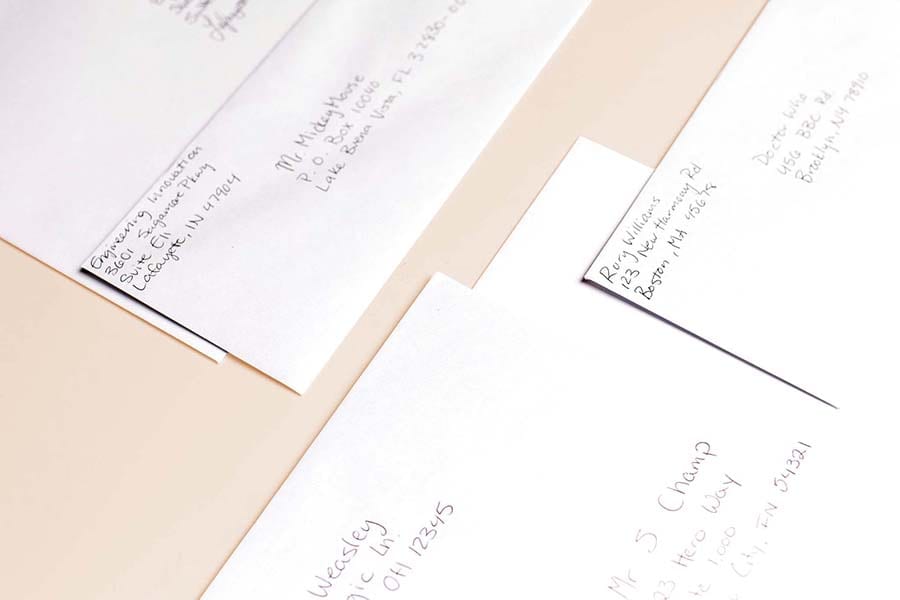 Engineering Innovation
3601 Sagamore Pkwy
Suite E11
Lafayette, IN 47904
Mr. Mickey Mouse
P.O. Box 10040
Lake Buena Vista, FL 32830-00
Rory Williams
123 New Harmony Rd
Boston, MA 45678
Doctor Who
456 BBC Rd.
Brooklyn, NY 78910
Weasley
gic Ln.
OH 12345
Mr S Champ
23 Hero Way
te 1,000
City, FN 54321